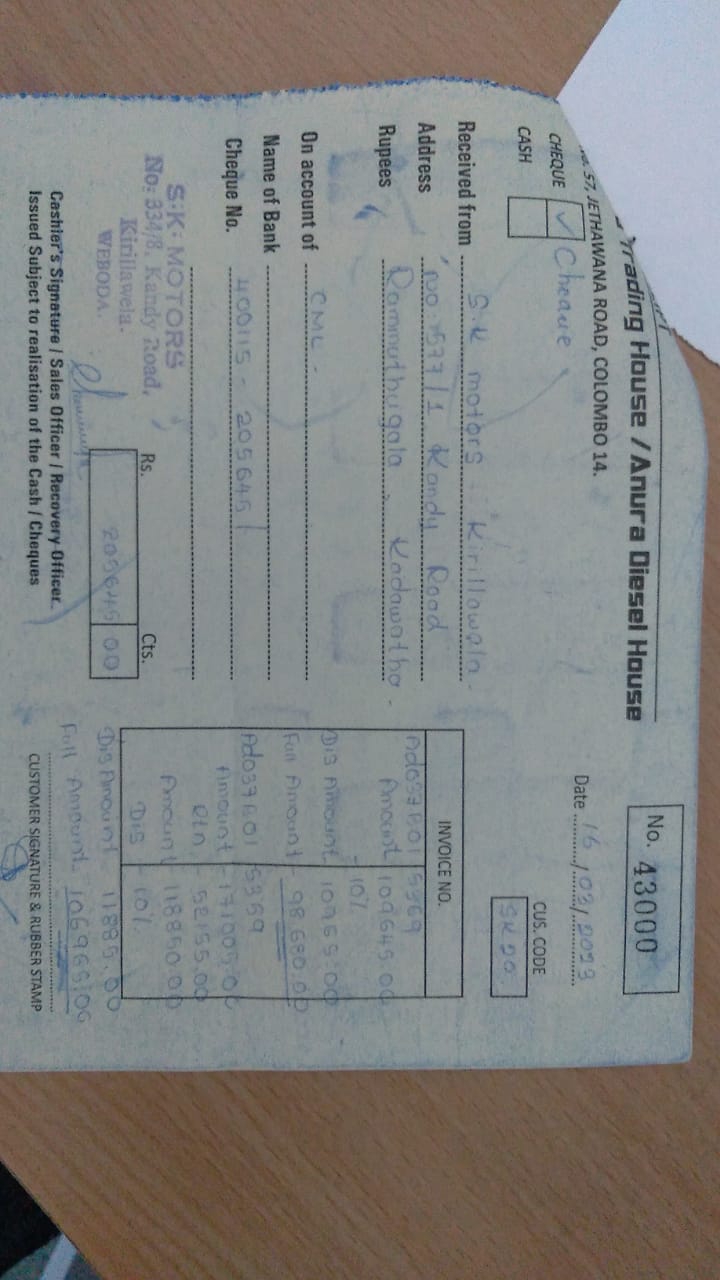 Trading House / Anura Diesel House
57, JETHAWANA ROAD, COLOMBO 14.
No. 43000
Date 16/03/2023
CHEQUE ✓ Cheque
CASH
CUS. CODE
SK 20
Received from S.K motors - Kirillawala -
Address No. 1577/1 Kandy Road
Rupees Rammuthugala , Kadawatha -
On account of CML -
Name of Bank
Cheque No. 400115 - 205645/
S.K. MOTORS
No: 334/8, Kandy Road,
Kirillawela.
WEBODA.
Rs. Cts.
205645 00
Cashier's Signature / Sales Officer / Recovery Officer.
Issued Subject to realisation of the Cash / Cheques
INVOICE NO.
Ado37B01 5369
Amount 109645.00
- 10%
Dis Amount 10965.00
Full Amount 98680.00
Ado37B01 5369
Amount - 171005.00
RTN - 52155.00
Amount 118850.00
Dis - 10%
Dis Amount 11885.00
Full Amount 106965.00
CUSTOMER SIGNATURE & RUBBER STAMP